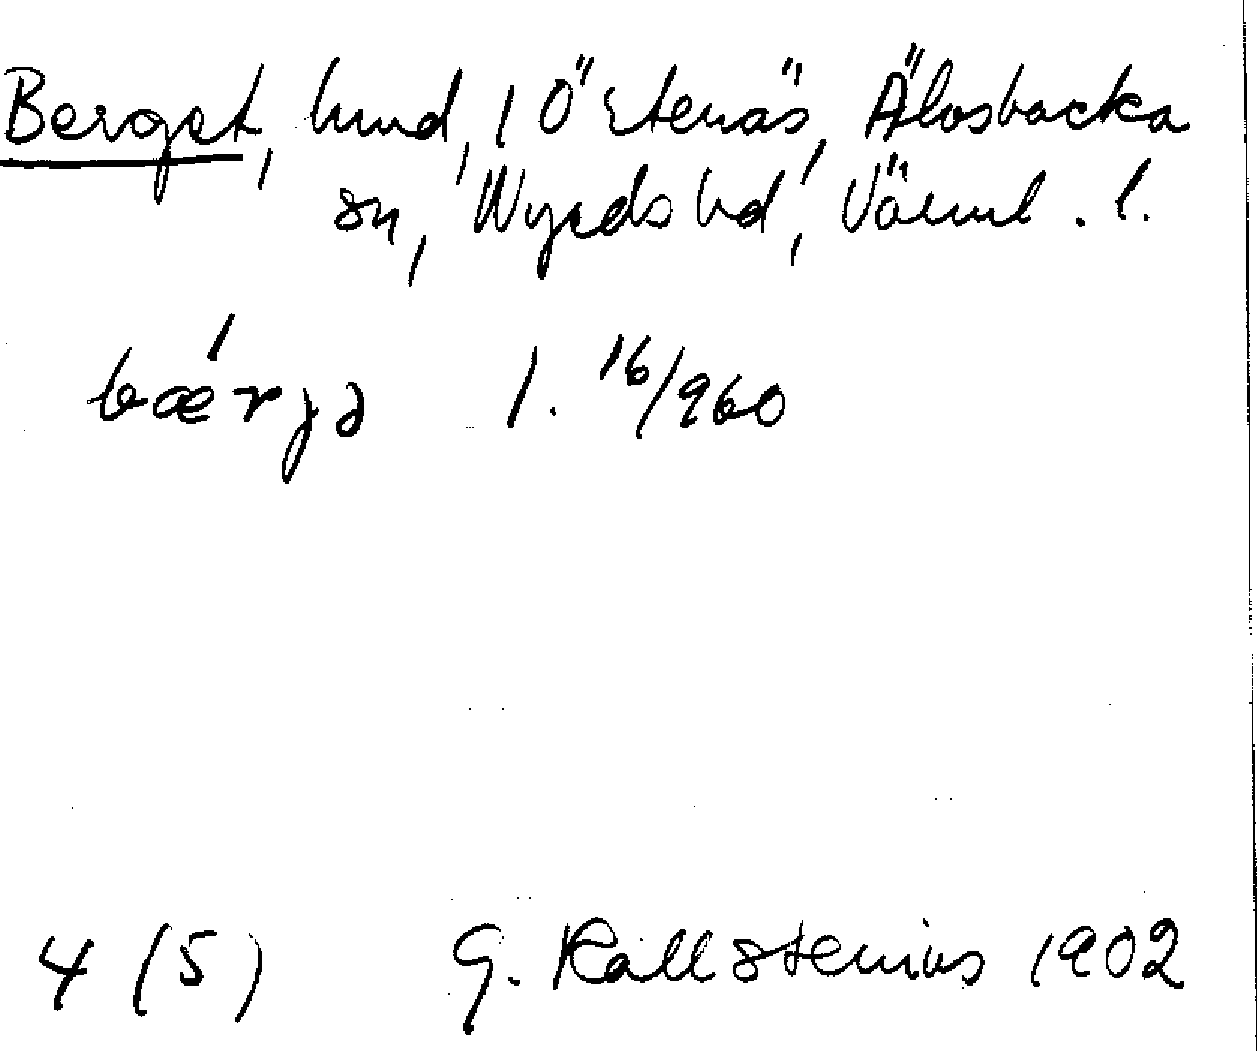 Berget, hmd, i Östenäs, Älvsbacka
sn, Nyeds hd, Värml. l.
bæ´rjə 1. 16/960
4 (5) G. Kallstenius 1902